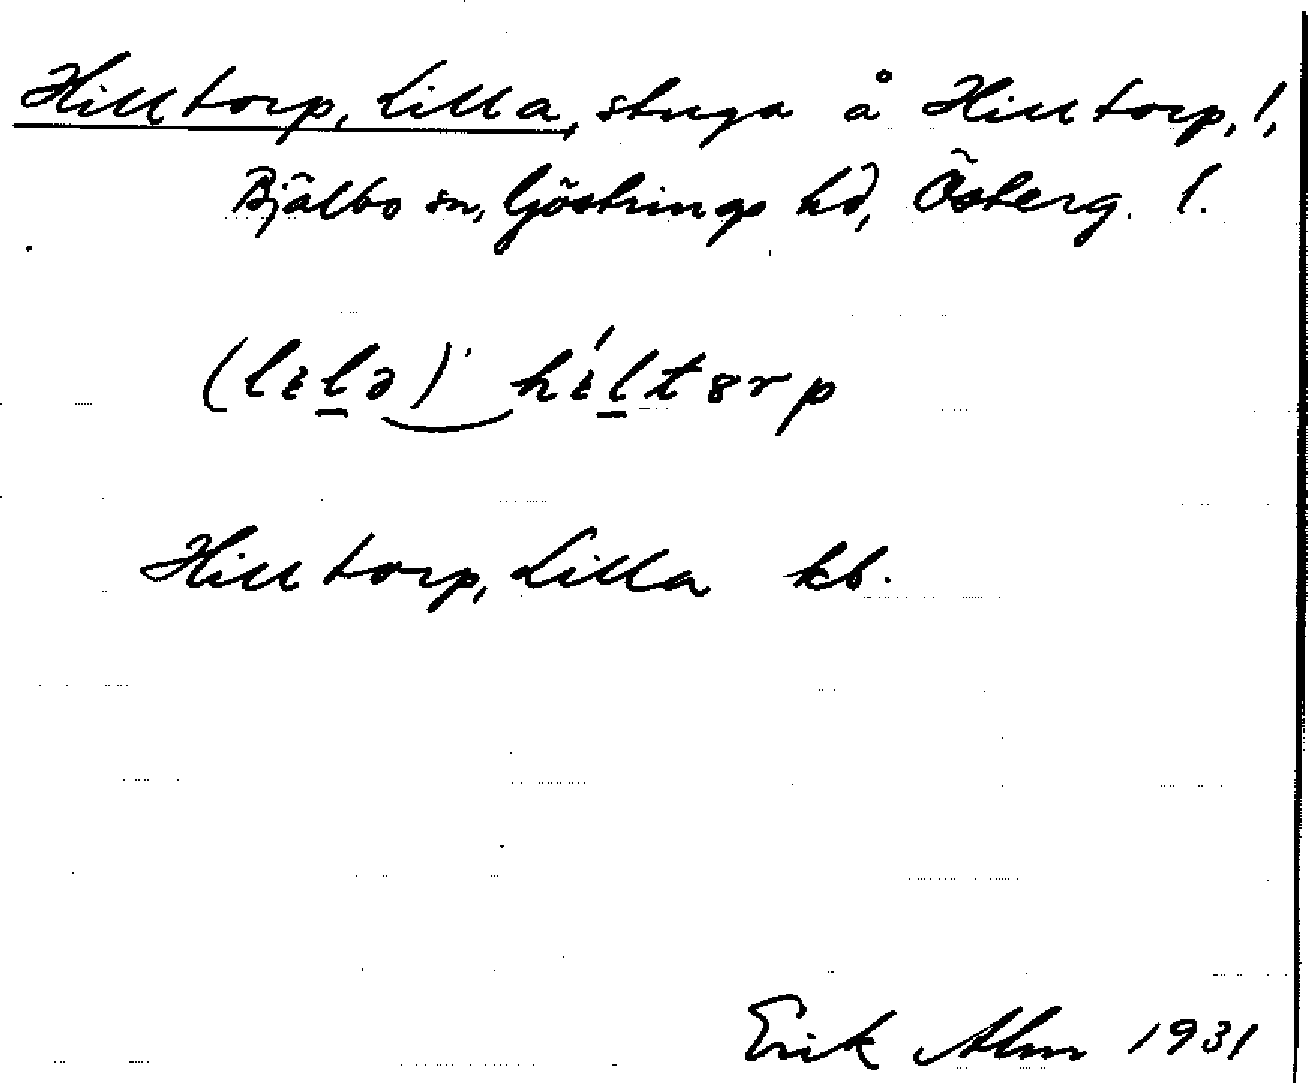 Hilltorp, Lilla, stuga å Hilltorp, l,
Bjälbo sn, Göstrings hd, Österg. l.
(lila) hiltorp
Hilltorp, Lilla kb.
Erik Alm 1931